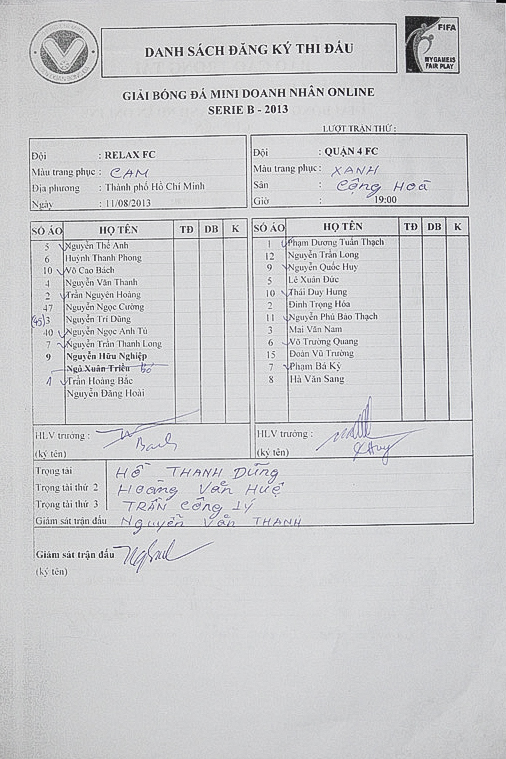 FIFA
MYGAMES
FAIR PLAY
DANH SÁCH ĐĂNG KÝ THI ĐẤU
GIẢI BÓNG ĐÁ MINI DOANH NHÂN ONLINE
SERIE B - 2013
LƯỢT TRẬN THỨ :
Đội : RELAX FC
Màu trang phục : CAM
Địa phương : Thành phố Hồ Chí Minh
Ngày : 11/08/2013
Đội : QUẬN 4 FC
Màu trang phục : XANH
Sân : Cộng Hoà
Giờ 19:00
SỐ ÁO HỌ TÊN TĐ DB K
5 Nguyễn Thế Anh
6 Huỳnh Thanh Phong
10 Võ Cao Bách
4 Nguyễn Văn Thanh
2 Trần Nguyên Hoàng
47 Nguyễn Ngọc Cường
(45) 3 Nguyễn Trí Dũng
40 Nguyễn Ngọc Anh Tú
7 Nguyễn Trần Thanh Long
9 Nguyễn Hữu Nghiệp
Ngô Xuân Triều bỏ
1 Trần Hoàng Bắc
Nguyễn Đăng Hoài
SỐ ÁO HỌ TÊN TĐ DB K
1 Phạm Dương Tuấn Thạch
12 Nguyễn Trần Long
9 Nguyễn Quốc Huy
5 Lê Xuân Đức
10 Thái Duy Hưng
2 Đinh Trọng Hòa
11 Nguyễn Phú Bảo Thạch
3 Mai Văn Nam
6 Võ Trường Quang
15 Đoàn Vũ Trường
7 Phạm Bá Kỳ
8 Hà Văn Sang
HLV trưởng :
(ký tên) Bach
HLV trưởng :
(ký tên) Huy
Trọng tài HỒ THANH DŨNG
Trọng tài thứ 2 HOÀNG VĂN HUỆ
Trọng tài thứ 3 TRẦN CÔNG LÝ
Giám sát trận đấu Nguyễn Văn THANH
Giám sát trận đấu
(ký tên)